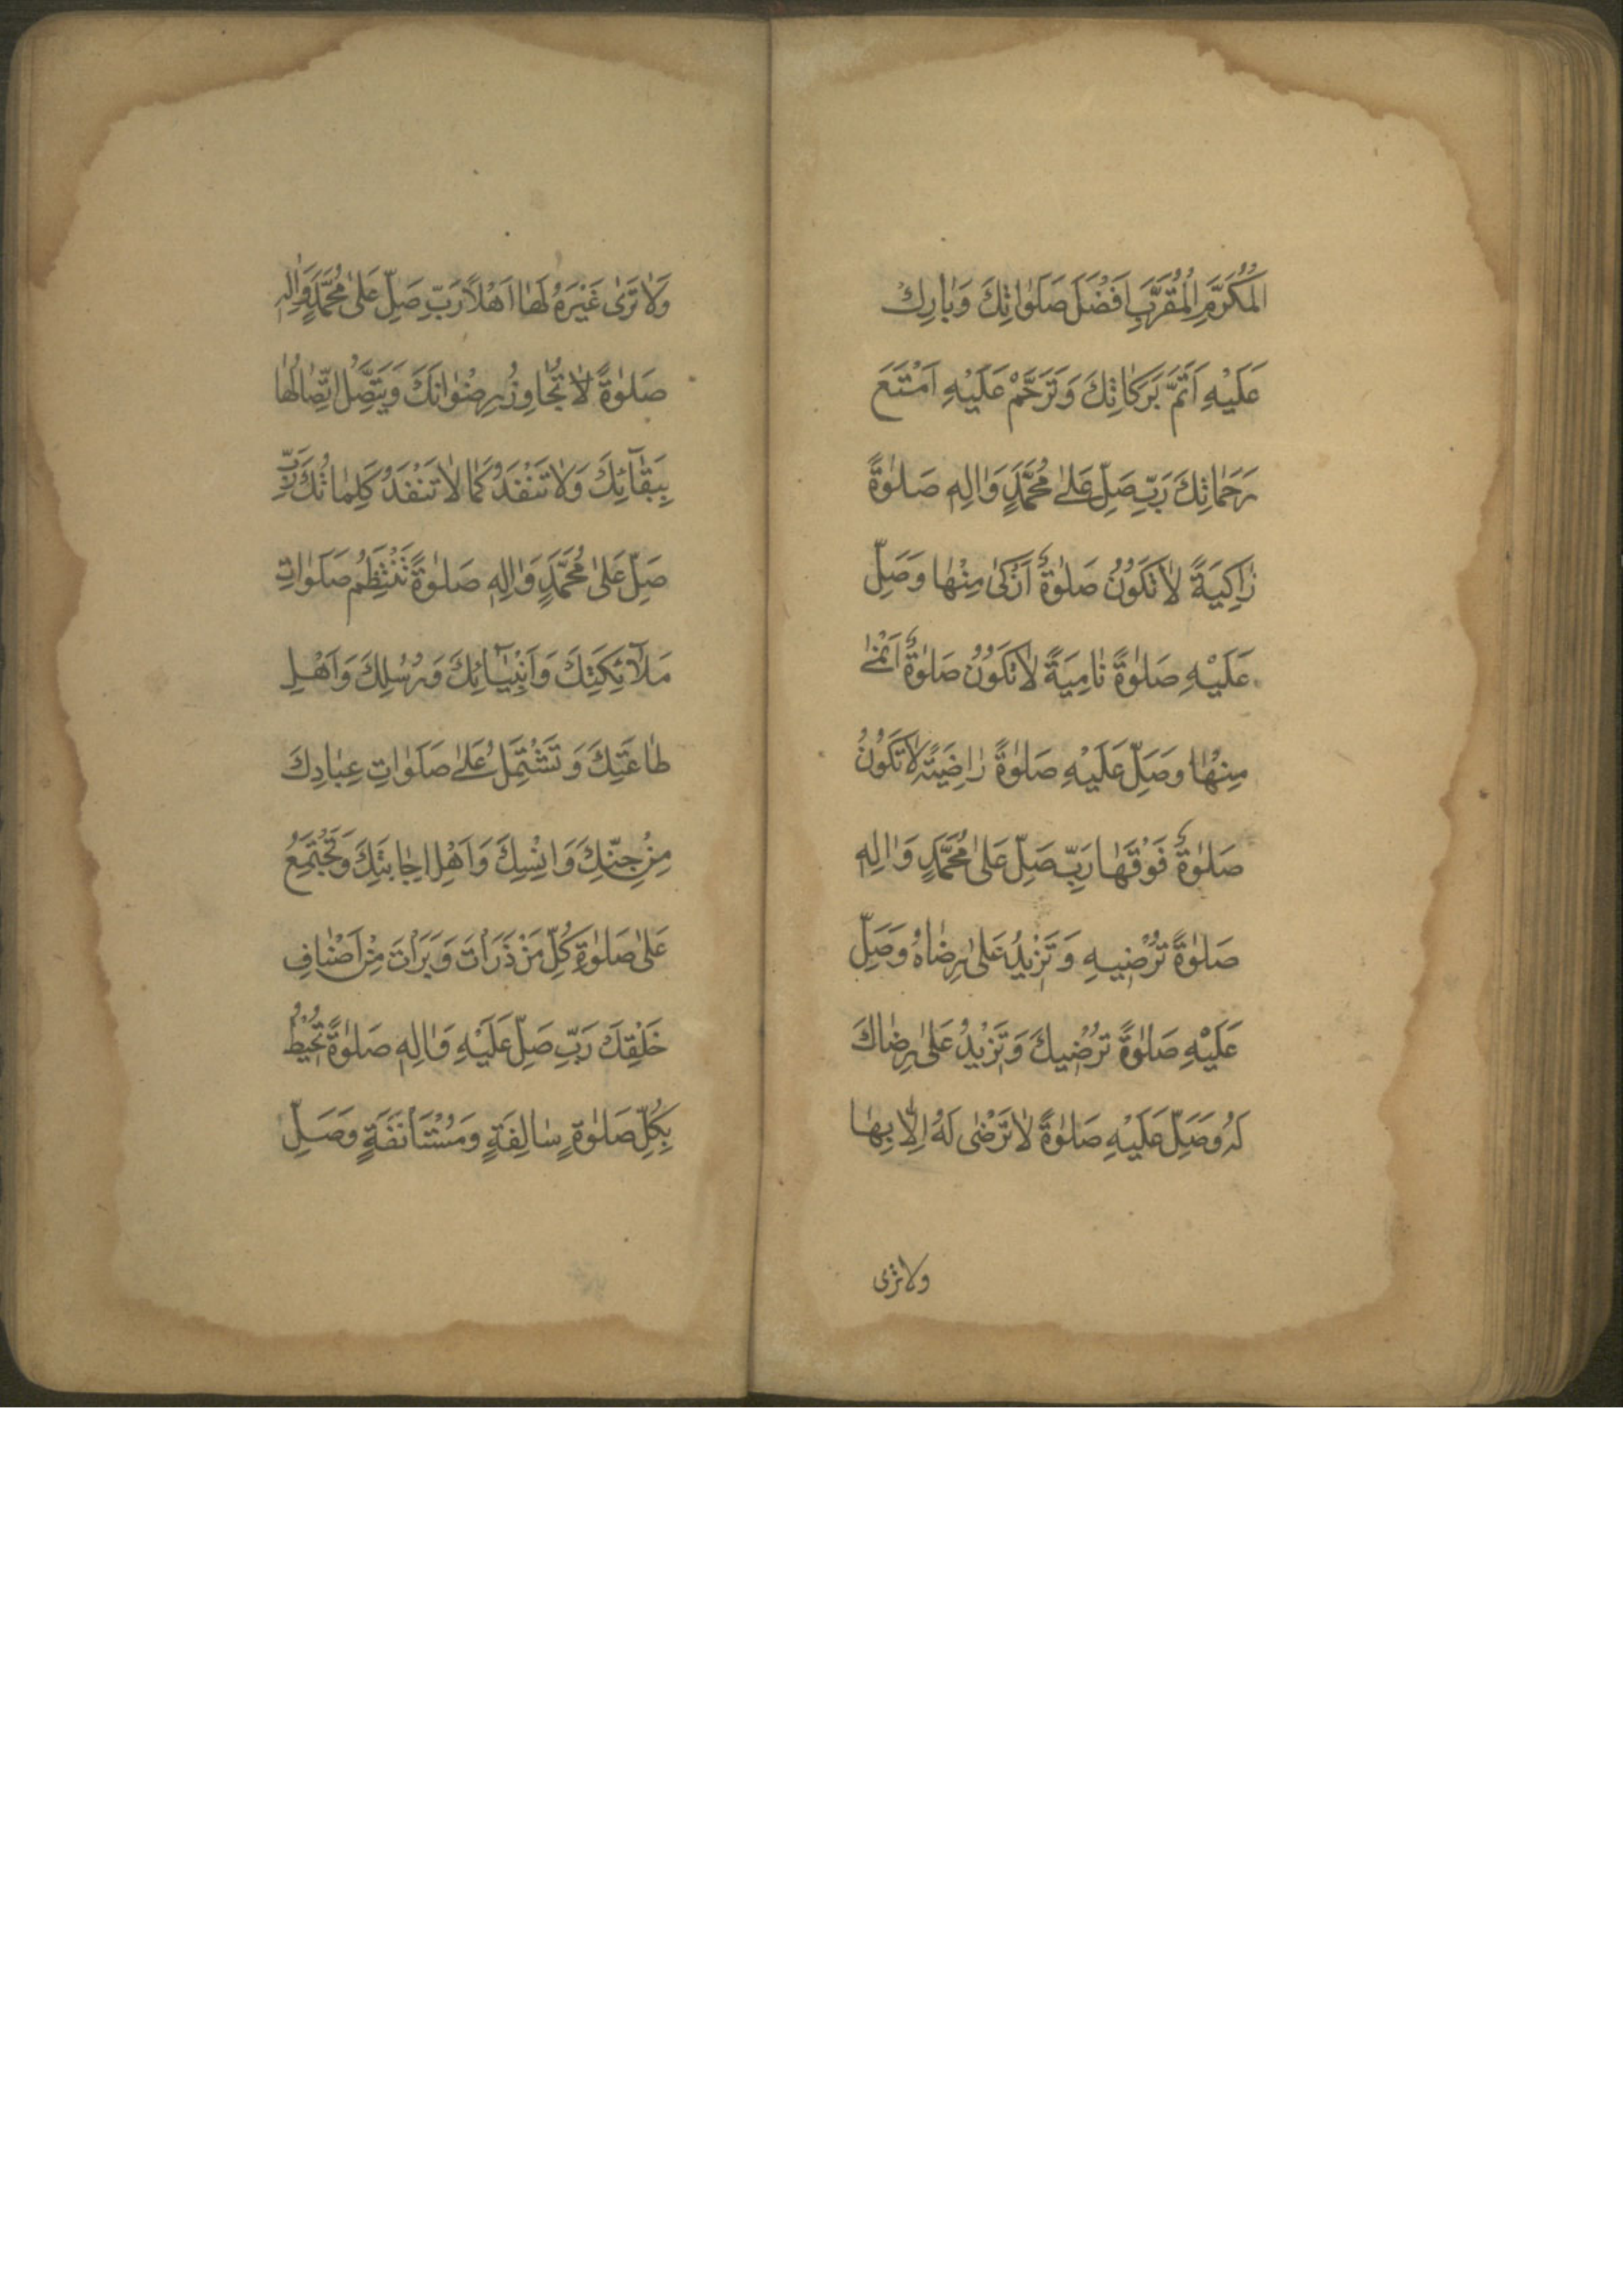 الْمُكَرَّمِ الْمُقَرَّبِ اَفْضَلَ صَلَوٰاتِكَ وَبٰارِكْ
عَلَيْهِ اَتَمَّ بَرَكٰاتِكَ وَتَرَحَّمْ عَلَيْهِ اَمْتَعَ
رَحَمٰاتِكَ رَبِّ صَلِّ عَلىٰ مُحَمَّدٍ وَاٰلِهِ صَلوٰةً
زٰاكِيَةً لاٰتَكُونُ صَلوٰةٌ اَزْكىٰ مِنْهٰا وَصَلِّ
عَلَيْهِ صَلوٰةً نٰامِيَةً لاٰتَكُونُ صَلوٰةٌ اَنْمىٰ
مِنْهٰا وَصَلِّ عَلَيْهِ صَلوٰةً رٰاضِيَةً لاٰتَكُونُ
صَلوٰةٌ فَوْقَهٰا رَبِّ صَلِّ عَلىٰ مُحَمَّدٍ وَاٰلِهِ
صَلوٰةً تُرْضيهِ وَتَزْيدُ عَلىٰ رِضٰاهُ وَصَلِّ
عَلَيْهِ صَلوٰةً تُرْضيكَ وَتَزْيدُ عَلىٰ رِضٰاكَ
لَهُ وَصَلِّ عَلَيْهِ صَلوٰةً لاٰتَرْضٰى لَهُ اِلّٰا بِهٰا
ولاترى
وَلاٰتَرىٰ غَيْرَهُ لَهٰا اَهْلاً رَبِّ صَلِّ عَلىٰ مُحَمَّدٍ وَاٰلِهِ
صَلوٰةً لاٰتُجٰاوِزُ رِضْوٰانَكَ وَيَتَّصِلُ اتِّصٰالُهٰا
بِبَقٰآئِكَ وَلاٰتَنْفَدُ كَمٰا لاٰتَنْفَدُ كَلِمٰاتُكَ رَبِّ
صَلِّ عَلىٰ مُحَمَّدٍ وَاٰلِهِ صَلوٰةً تَنْتَظِمُ صَلَوٰاتِ
مَلآئِكَتِكَ وَاَنْبِيٰآئِكَ وَرُسُلِكَ وَاَهْلِ
طٰاعَتِكَ وَتَشْتَمِلُ عَلىٰ صَلَوٰاتِ عِبٰادِكَ
مِنْ جِنِّكَ وَاِنْسِكَ وَاَهْلِ اِجٰابَتِكَ وَتَجْتَمِعُ
عَلىٰ صَلوٰةِ كُلِّ مَنْ ذَرَاْتَ وَبَرَاْتَ مِنْ اَصْنٰافِ
خَلْقِكَ رَبِّ صَلِّ عَلَيْهِ وَاٰلِهِ صَلوٰةً تُحيْطُ
بِكُلِّ صَلوٰةٍ سٰالِفَةٍ وَمُسْتَأْنَفَةٍ وَصَلِّ